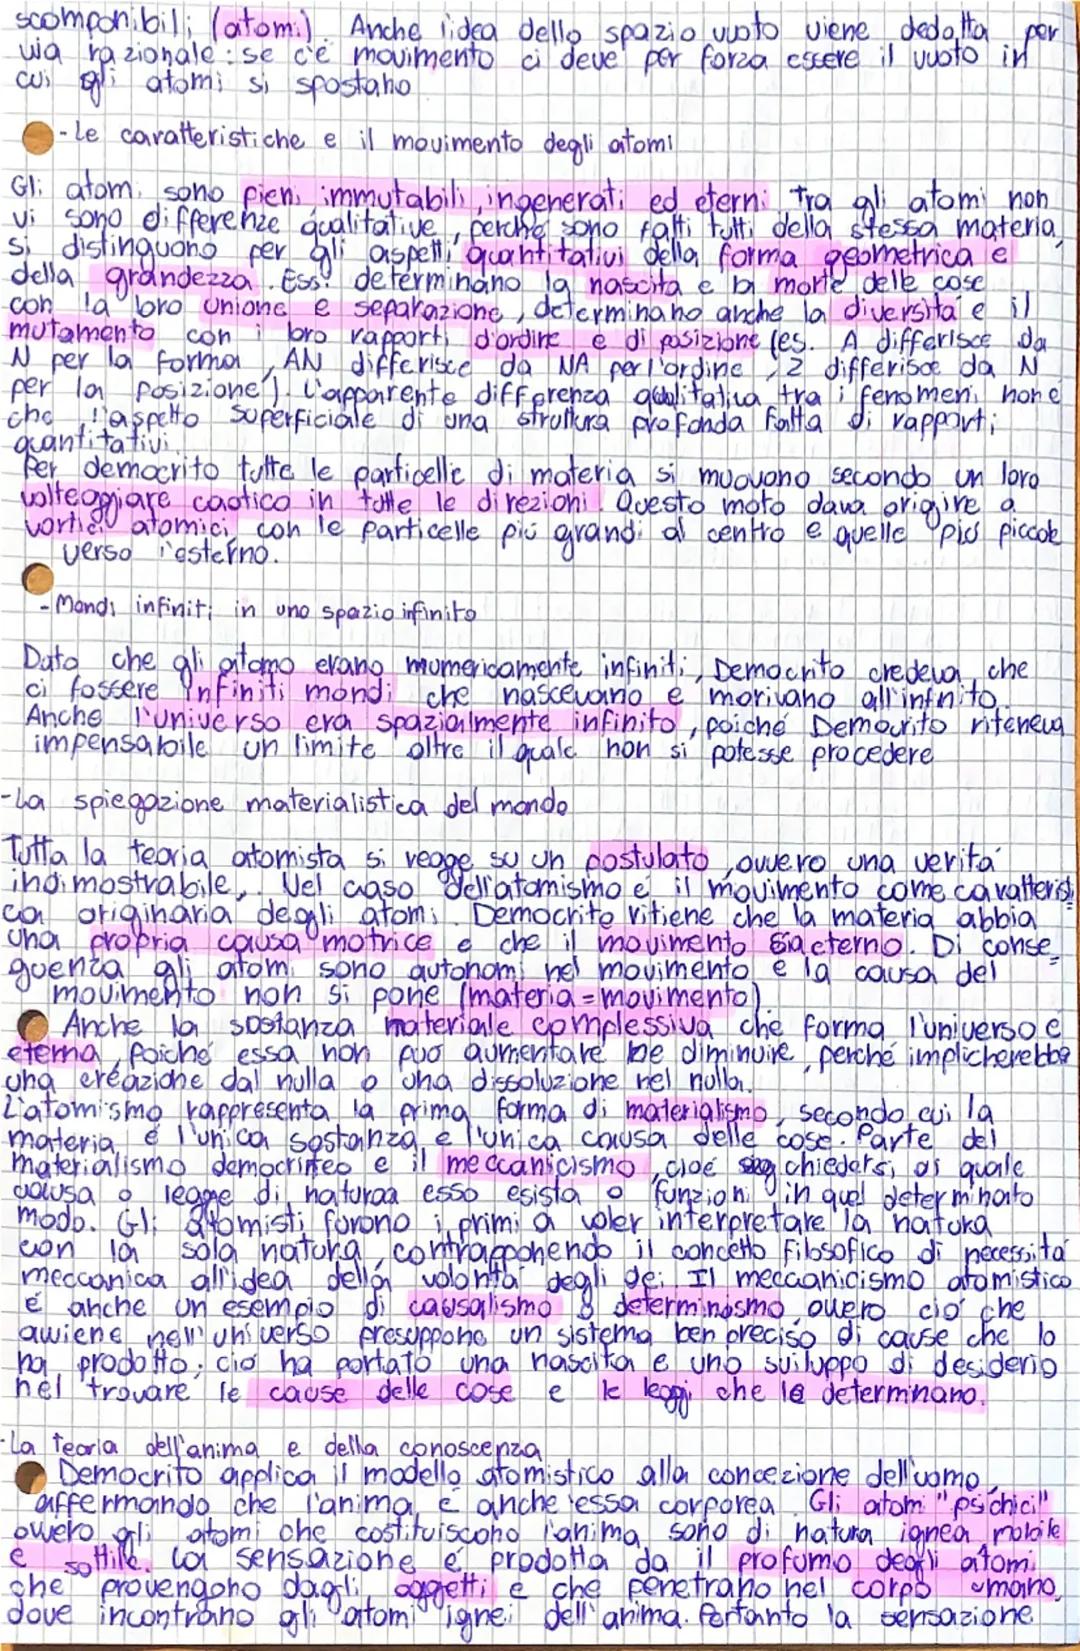 scomponibili (atomi). Anche l'idea dello spazio vuoto viene dedotta per
via razionale: se c'è movimento ci deve per forza essere il vuoto in
cui gli atomi si spostano
-Le caratteristiche e il movimento degli atomi
Gli atomi sono pieni immutabili, ingenerati ed eterni tra gli atomi non
vi sono differenze qualitative, perché sono fatti tutti della stessa materia,
si distinguono per gli aspetti quantitativi della forma geometrica e
della grandezza. Essi determinano la nascita e la morte delle cose
con la loro unione e separazione, determinano anche la diversità e il
mutamento con i loro rapporti d'ordine e di posizione (es. A differisce da
N per la forma, AN differisce da NA per l'ordine, Z differisce da N
per la posizione). L'apparente differenza qualitativa tra i fenomeni non è
che l'aspetto superficiale di una struttura profonda fatta di rapporti
quantitativi.
Per democrito tutte le particelle di materia si muovono secondo un loro
volteggiare caotico in tutte le direzioni. Questo moto dava origire a
vortici atomici, con le particelle più grandi al centro e quelle più piccole
verso l'esterno.
-Mondi infiniti in uno spazio infinito
Dato che gli atomo erano numericamente infiniti, Democrito credeva che
ci fossere infiniti mondi che nascevano e morivano all'infinito
Anche l'universo era spazialmente infinito, poiché Democrito riteneva
impensabile un limite oltre il quale non si potesse procedere
-La spiegazione materialistica del mondo
Tutta la teoria atomista si regge su un postulato, ovvero una verità
indimostrabile. Nel caso dell'atomismo é il movimento come caratteristi
ca originaria degli atomi. Democrito ritiene che la materia abbia
una propria causa motrice e che il movimento sia eterno. Di conse
guenza gli atomi sono autonomi nel movimento e la causa del
movimento non si pone (materia=movimento)
Anche la sostanza materiale complessiva che forma l'universo é
eterna, poiché essa non può aumentare ne diminuire, perché implicherebbe
una creazione dal nulla o una dissoluzione nel nulla.
L'atomismo rappresenta la prima forma di materialismo, secondo cui la
materia é l'unica sostanza e l'unica causa delle cose. Parte del
materialismo democriteo e il meccanicismo, cioé chiedersi di quale
causa o legge di naturaa esso esista o funzioni in quel determinato
modo. Gli atomisti furono i primi a voler interpretare la natura
con la sola natura, contrapponendo il concetto filosofico di necessità
meccanica all'idea della volontà degli dei. Il meccanicismo atomistico
é anche un esempio di causalismo e determinismo, ovvero ció che
avviene nell'universo presuppone un sistema ben preciso di cause che lo
ha prodotto; ció ha portato una nascita e uno sviluppo di desiderio
nel trovare le cause delle cose e le leggi che le determinano.
-La teoria dell'anima e della conoscenza
Democrito applica il modello atomistico alla concezione dell'uomo,
affermando che l'anima é anche essa corporea. Gli atomi "psichici"
ovvero gli atomi che costituiscono l'anima, sono di natura ignea mobile
e sottile. La sensazione é prodotta da il profumo degli atomi
che provengono dagli oggetti e che penetrano nel corpo umano,
dove incontrano gli atomi ignei dell'anima. Pertanto la sensazione